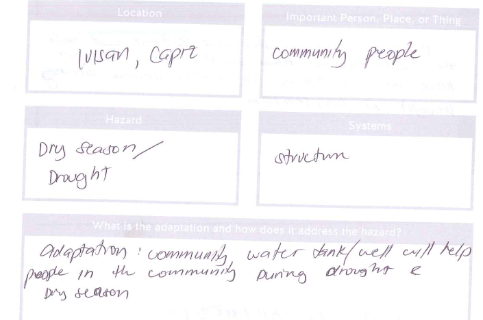 Location
Ivisan, Capiz
Important Person, Place, or Thing
community people
Hazard
Dry season/
Drought
Systems
structure
What is the adaptation and how does it address the hazard?
adaptation : community water tank/well will help
people in the community During drought &
Dry season